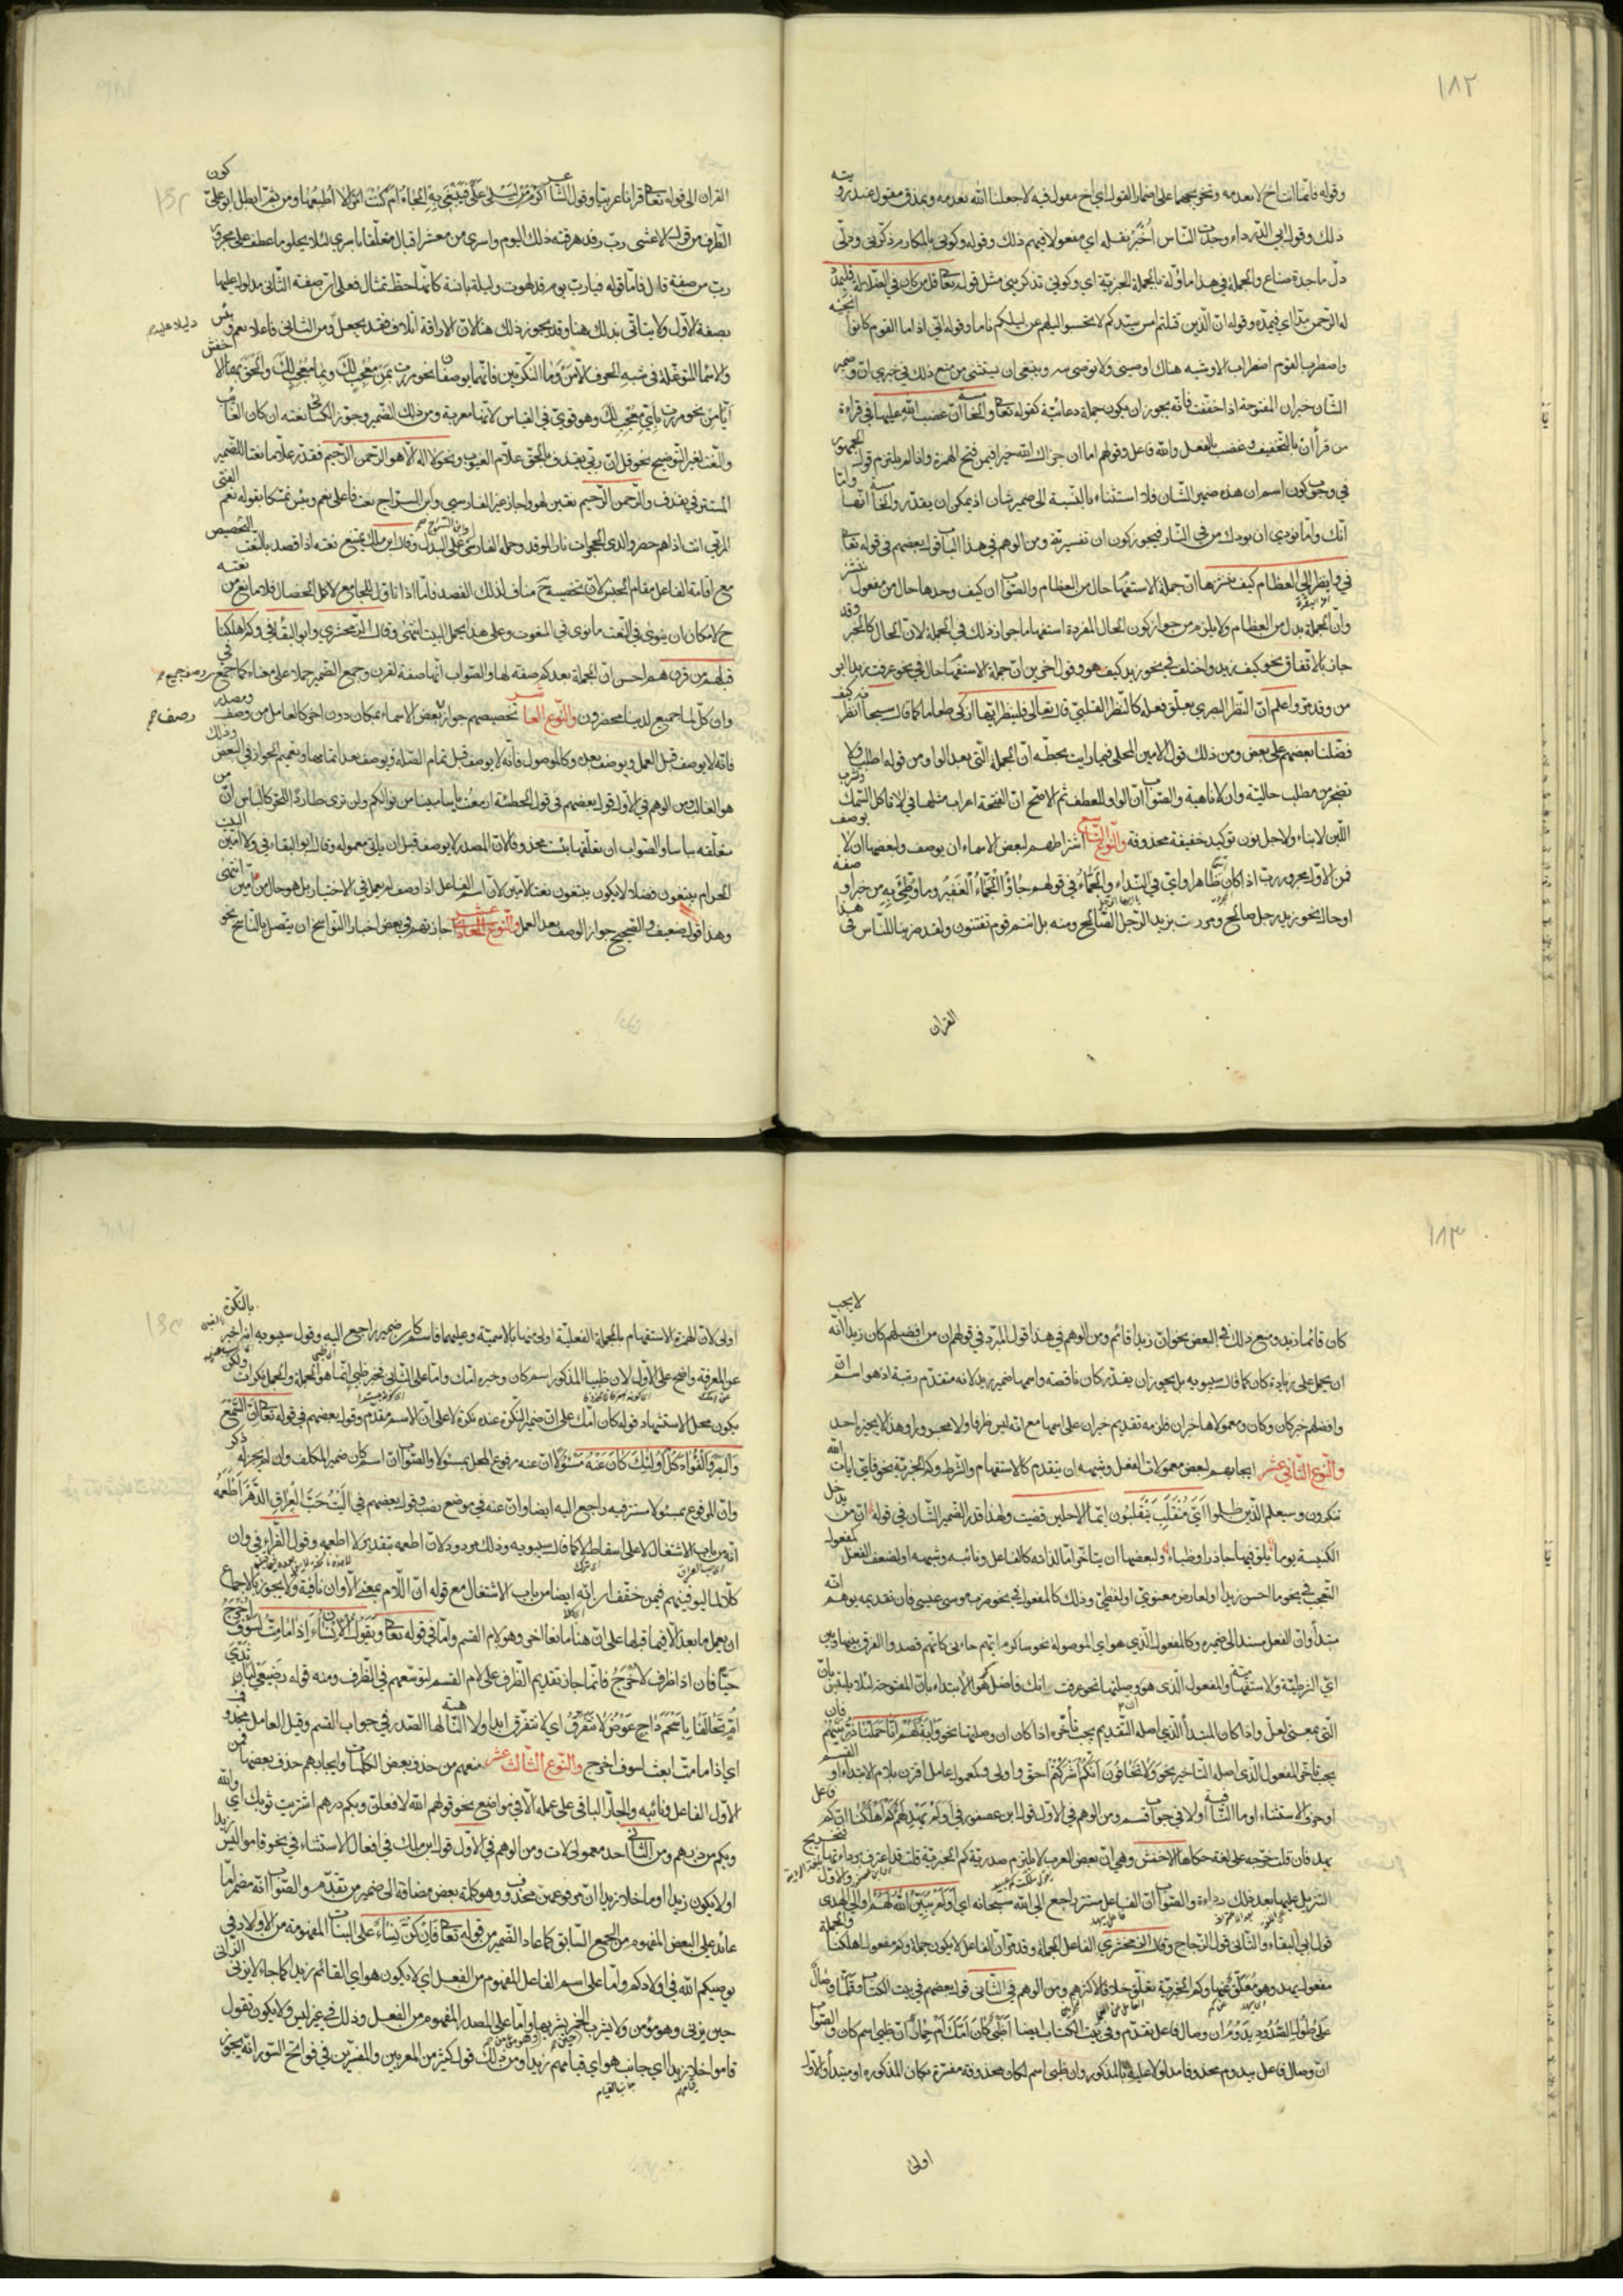 ١٨٢
وقوله فانما انت اخ لا نعدمه ونحو بجهما على اضمار القول اي اخ مقول فيه لا جعلنا الله نعدمه وبمذق مقول عند رويته
ذلك وقول ابي الدرداء وجدت الناس اخبر تقله اي مفعولا فيهم ذلك وقوله وكوني بالمكارم ذكريني ودلي
دل ماجدة صناع والجملة في هذا مأولة بالجملة الخبرية اي وكوني تذكرينني مثل قوله تعالى قل من كان في الضلالة فليمدد
له الرحمن مدا اي فيمد وقوله ان الذين قتلتم امس سيدكم لا تحسبوا ليلهم عن ليلكم ناما وقوله اني اذا ما القوم كانوا انجيه
واضطرب القوم اضطراب الارشيه هناك اوصيني ولا توصي بيه وينبغي ان يستثنى من منع ذلك في خبري ان وضمير
الشان خبر ان المفتوحة اذا خففت فانه يجوز ان يكون جملة دعائية كقوله تعالى والخامسة ان غضب الله عليها في قراءة
من قرأ ان بالتخفيف وغضب بالفعل والله فاعل وقولهم اما ان جزاك الله خيرا فيمن فتح الهمزة واذا لم يلتزم قول الجمهور
في وجوب كون اسم ان هذه ضمير الشان فلا استثناء بالنسبة الى ضمير شان اذ يمكن ان يقدر والخامسة انها واما
انك واما نودي ان بورك من في النار فيجوز كون ان تفسيرية ومن الوهم في هذا الباب قول بعضهم في قوله تعالى
في وانظر الى العظام كيف ننشزها ان جملة الاستفهام حال من العظام والصواب ان كيف وحدها حال من مفعول ننشز
وان الجملة بدل من العظام ولا يلزم من جواز كون الحال المفردة استفهاما جواز ذلك في الجملة لان الحال كالخبر وقد
جاز بالاتفاق نحو كيف زيد واختلف في نحو زيد كيف هو وقول اخرين ان جملة الاستفهام حال في نحو عرفت زيدا ابو
من وقد مر واعلم ان النظر البصري يعلق فعله كالنظر القلبي قال تعالى فلينظر ايها ازكى طعاما كما قال سبحانه انظر كيف
فضلنا بعضهم على بعض ومن ذلك قول الامين المحلي فيما رايت بخطه ان الجملة التي بعد الواو من قوله اطلب ولا
تضجر من مطلب حالية وان لا ناهية والصواب ان الواو للعطف ثم الاصح ان الفتحة اعراب مثلها في لا تاكل السمك وتشرب
اللبن لا بناء ولاجل نون توكيد خفيفة محذوفة والنوع التاسع اشتراطهم لبعض الاسماء ان يوصف ولبعضها ان لا يوصف
فمن الاول مجرور رب اذا كان ظاهرا واي في النداء والجماء في قولهم جاؤا الجماء الغفير وما وطئ به من خبر او صفة
او حال نحو زيد رجل صالح ومررت بزيد الرجل الصالح ومنه بل انتم قوم تفتنون ولقد ضربنا للناس في هذا
القران
القران الى قوله تعالى قرانا عربيا وقول الشاعر اكرم من ليلى علي فتبتغي به الجاه ام كنت امرأ لا اطيعها ومن ثم ابطل ابو علي كون
الظرف من قول الاعشى رب رفد هرقته ذلك اليوم واسرى من معشر اقتال متعلقا باسرى لئلا يخلو ما عطف على مجرور
رب من صفة قال فاما قوله فيا رب يوم قد لهوت وليلة بانسة كانها خط تمثال فعلى ان صفة الثاني مدلول عليها
بصفة الاول ولا يتاتى بذلك هنا وقد يجوز ذلك هنا لان الاراقة اتلاف فقد يجعل ومن الثاني فاعلا نعم وبئس
والاسماء المتوغلة في شبه الحروف الا من وما النكرتين فانهما يوصفان نحو مررت بمن معجب لك وبما معجب لك والحق بهما الاخفش
ايا من نحو مررت باي معجب لك وهو قوي في القياس لانها معربة ومن ذلك الضمير وجوز الكسائي نعته ان كان لغائب
والنعت لغير التوضيح نحو قل ان ربي يقذف بالحق علام الغيوب ونحو لا اله الا هو الرحمن الرحيم فقدر علام نعتا للضمير
المستتر في يقذف والرحمن الرحيم نعتين لهو واجاز غير الفارسي وابن السراج نعت فاعلى نعم وبئس تمسكا بقوله نعم الفتى
المري انت اذا هم حضروا لدى الحجرات نار الموقد وحمله الفارسي وابن السراج على البدل وقال ابن مالك يمتنع نعته اذا قصد بالنعت التخصيص
مع اقامة الفاعل مقام الجنس لان تخصيصه ح مناف لذلك القصد فاما اذا تاول بالجامع لاكمل الخصال فلا مانع من نعته
ح لامكان ان ينوى في النعت ما نوى في المنعوت وعلى هذا يحمل البيت انتهى وقال الزمخشري وابو البقاء في وكم اهلكنا
قبلهم من قرن هم احسن ان الجملة بعدكم صفة لها والصواب انها صفة لقرن وجمع الضمير حملا على معناه كما جمع وصف جميع في
وان كل لما جميع لدينا محضرون والنوع العاشر تخصيصهم جواز وصف بعض الاسماء بمكان دون اخر كالعامل من وصف ومصدر
فانه لا يوصف قبل العمل ويوصف بعده وكالموصول فانه لا يوصف قبل تمام الصلة ويوصف بعد اتمامها وتعميم الجواز في البعض وذلك
هو الغالب ومن الوهم في الاول قول بعضهم في قول الحطيئة ازمعت ياسا مبينا من نوالكم ولن ترى طاردا للحر كالياس ان من
متعلقه بياسا والصواب ان تعلقها بيئست محذوفا لان المصدر لا يوصف قبل ان ياتي معموله وقال ابو البقاء في ولا امين البيت
الحرام يبتغون فضلا لا يكون يبتغون نعتا لامين لان اسم الفاعل اذا وصف لم يعمل في الاختيار بل هو حال من امين انتهى
وهذا قول ضعيف والصحيح جواز الوصف بعد العمل والنوع الحادي عشر اجازتهم في بعض اخبار النواسخ ان يتصل بالناسخ نحو
١٨٣
كان قائما زيد ومنع ذلك في البعض نحو ان زيدا قائم ومن الوهم في هذا قول المبرد في قولهم ان من افضلهم كان زيدا انه لا يجب
ان يحمل على زيادة كان كما قال سيبويه بل يجوز ان يقدر كان ناقصة واسمها ضمير زيد لانه متقدم رتبة اذ هو اسم ان
وافضلهم خبر كان وكان ومعمولاها خبر ان فلزمه تقديم خبر ان على اسمها مع انه ليس ظرفا ولا مجرورا وهذا لا يجيزه احد
والنوع الثاني عشر ايجابهم لبعض معمولات الفعل وشبهه ان يتقدم كالاستفهام والشرط وكم الخبرية نحو فاي ايات الله
تنكرون وسيعلم الذين ظلموا اي منقلب ينقلبون ايما الاجلين قضيت ولهذا قدر الضمير الشان في قوله ان من يدخل
الكنيسة يوما يلق فيها جاذرا وظباء ولبعضها ان يتاخر اما لذاته كالفاعل ونائبه وشبهه او لضعف الفعل كمفعول
التعجب في نحو ما احسن زيدا او لعارض معنوي او لفظي وذلك كالمفعول في نحو ضرب موسى عيسى فان تقديمه يوهم انه
مبتدأ وان الفعل مسند الى ضميره وكالمفعول الذي هو اي الموصولة نحو ساكرم ايهم جاءني كانهم قصدوا الفرق بينها وبين
اي الشرطية والاستفهامية والمفعول الذي هو ان وصلتها نحو عرفت انك فاضل كرهوا الابتداء بان المفتوحة لئلا يلتبس بان
التي بمعنى لعل واذا كان المبتدأ الذي اصله التقديم يجب تأخره اذا كان ان وصلتها نحو واية لهم انا حملنا ذريتهم فان
يجب تاخر المفعول الذي اصله التاخير نحو ولا تخافون انكم اشركتم احق واولى وكمعمول عامل اقترن بلام الابتداء او القسم
او حرف الاستثناء او ما النافية او لا في جواب قسم ومن الوهم في الاول قول ابن عصفور في اولم يهد لهم كم اهلكنا ان كم فاعل
يهد فان قلت خرجه على لغة حكاها الاخفش وهي ان بعض العرب لا يلتزم صدرية كم الخبرية قلت قد اعترف برداءتها فتخريج
التنزيل عليها بعد ذلك رداءة والصواب ان الفاعل مستتر راجع الى الله سبحانه اي اولم يبين الله لهم او الى الهدى والاول
قول ابي البقاء والثاني قول الزجاج وقال الزمخشري الفاعل الجملة وقد مر ان الفاعل لا يكون جملة وكم مفعول اهلكنا والجملة
مفعول يهد وهو معلق عنها وكم الخبرية تعلق خلافا لاكثرهم ومن الوهم في الثاني قول بعضهم في بيت الكتاب وقلما وصال
على طول الصدود يدوم ان وصال فاعل تقدم وفي بيت الكتاب ايضا اظبي كان امك ام حمار ان ظبي اسم كان والصواب
ان وصال فاعل بيدوم محذوفا مدلولا عليه بالمذكور وان ظبي اسم لكان محذوفة مفسرة بكان المذكورة او مبتدأ والاول
اولى
اولى لان الهمزة الاستفهام بالجملة الفعلية اولى منها بالاسمية وعليهما فاسم كان ضمير راجع اليه وقول سيبويه انه اخبر بالنكرة
عن المعرفة واضح على الاول لان ظبيا المذكور اسم كان وخبره امك واما على الثاني فخبر ظبي انما هو الجملة والجمل نكرات ولكن
يكون محل الاستشهاد قوله كان امك على ان ضمير النكرة عنده نكرة لا على ان الاسم مقدم وقول بعضهم في قوله تعالى ان السمع
والبصر والفؤاد كل اولئك كان عنه مسئولا ان عنه مرفوع المحل بمسئولا والصواب ان اسم كان ضمير المكلف وان لم يجر له ذكر
وان المرفوع بمسئولا مستتر فيه راجع اليه ايضا وان عنه في موضع نصب وقول بعضهم في اليت حب العراق الدهر اطعمه
انه من باب الاشتغال لا على اسقاط على كما قال سيبويه وذلك مردود لان اطعمه بتقدير لا اطعمه وقول الفراء في وان
كلا لما ليوفينهم فيمن خفف ان انه ايضا من باب الاشتغال مع قوله ان اللام بمعنى الا وان نافية ولا يجوز بالاجماع
ان يعمل ما بعد الا فيما قبلها على ان هنا مانعا اخر وهو لام القسم واما في قوله تعالى ويقول الانسان ءاذا ما مت لسوف اخرج
حيا فان اذا ظرف لاخرج فانما جاز تقديم الظرف على لام القسم لتوسعهم في الظرف ومنه قوله رضيعي لبان ثدي
ام تحالفا باسحم داج عوض لا نتفرق اي لا نتفرق ابدا ولا النافية لها الصدر في جواب القسم وقيل العامل محذوف
اي اذا ما مت ابعث لسوف اخرج والنوع الثالث عشر منعهم من حذف بعض الكلمات وايجابهم حذف بعضها فمن
الاول الفاعل ونائبه والجار الباقي على عمله الا في مواضع نحو قولهم الله لافعلن وبكم درهم اشتريت ثوبك اي والله
وبكم من درهم ومن الثاني احد معمولي لات ومن الوهم في الاول قول ابن مالك في افعال الاستثناء في نحو قاموا ليس زيدا
او لا يكون زيدا او ما خلا زيدا ان مرفوعهن محذوف وهو كلمة بعض مضافة الى ضمير من تقدم والصواب انه مضمر اما
عائد على البعض المفهوم من الجمع السابق كما عاد الضمير من قوله تعالى فان كن نساء على البنات المفهومة من الاولاد في
يوصيكم الله في اولادكم واما على اسم الفاعل المفهوم من الفعل اي لا يكون هو اي القائم زيدا كما جاء لا يزني الزاني
حين يزني وهو مؤمن ولا يشرب الخمر حين يشربها وهو مؤمن واما على المصدر المفهوم من الفعل وذلك في غير ليس ولا يكون تقول
قاموا خلا زيدا اي جانب هو اي قيامهم زيدا ومن ذلك قول كثير من المعربين والمفسرين في فواتح السور انه يجوز